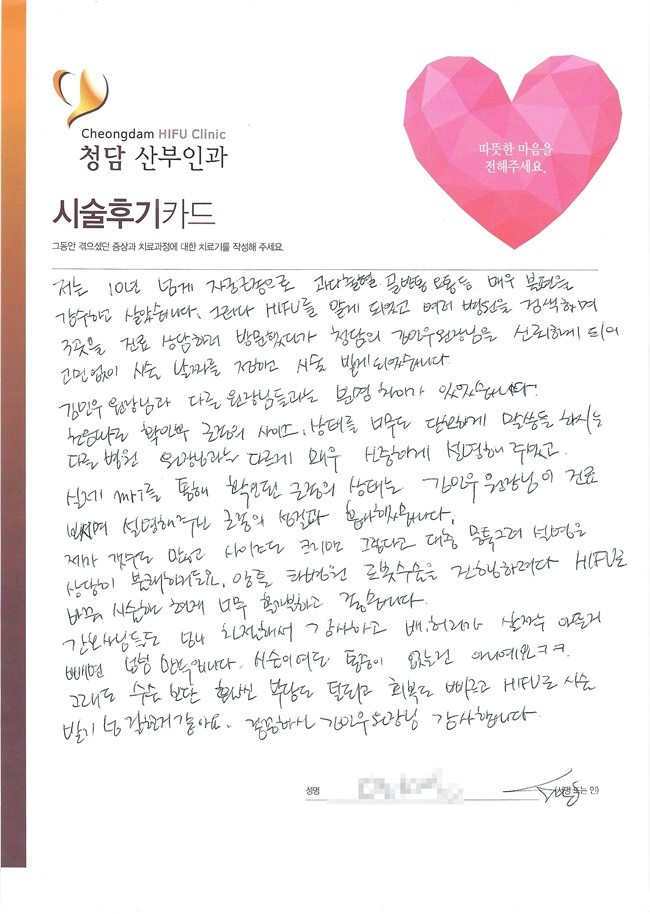 Cheongdam HIFU Clinic
청담 산부인과
따뜻한 마음을
전해주세요.
시술후기카드
그동안 겪으셨던 증상과 치료과정에 대한 치료기를 작성해 주세요.
저는 10년 넘게 자궁근종으로 과다출혈 골반통 요통등 매우 불편을
감수하고 살았습니다. 그러다 HIFU를 알게 되었고 여러 병원을 검색하며
3곳을 진료 상담하러 방문했다가 청담의 김민우원장님을 신뢰하게 되어
고민없이 시술 날짜를 정하고 시술 받게되었습니다.
김민우 원장님과 다른 원장님들과는 분명 차이가 있었습니다.
초음파로 확인한 근종의 사이즈. 상태를 너무도 단호하게 말씀들 하시는
다른 병원 원장님과는 다르게 매우 신중하게 설명해 주셨고
실제 MRI를 통해 확인된 근종의 상태는 김민우 원장님이 진료
보시며 설명해주신 근종의 성질과 흡사했습니다.
제가 갯수도 많고 사이즈도 크지만 그렇다고 대충 뭉뚱그려 설명을
상당히 불쾌하더군요. 암튼 타병원 로봇수술을 진행하려다 HIFU로
바꿔 시술해 현재 너무 홀가분하고 좋습니다.
간호사님들도 넘나 친절해서 감사하고 배.허리가 살짝 아픈거
빼면 넘넘 만족입니다. 시술이여도 통증이 없는건 아니예요ㅋㅋ.
그래도 수술 보단 훨씬 부담도 덜되고 회복도 빠르고 HIFU로 시술
받기 넘 잘한거 같아요. 꼼꼼하신 김민우원장님 감사합니다.
성명
(서명 또는 인)